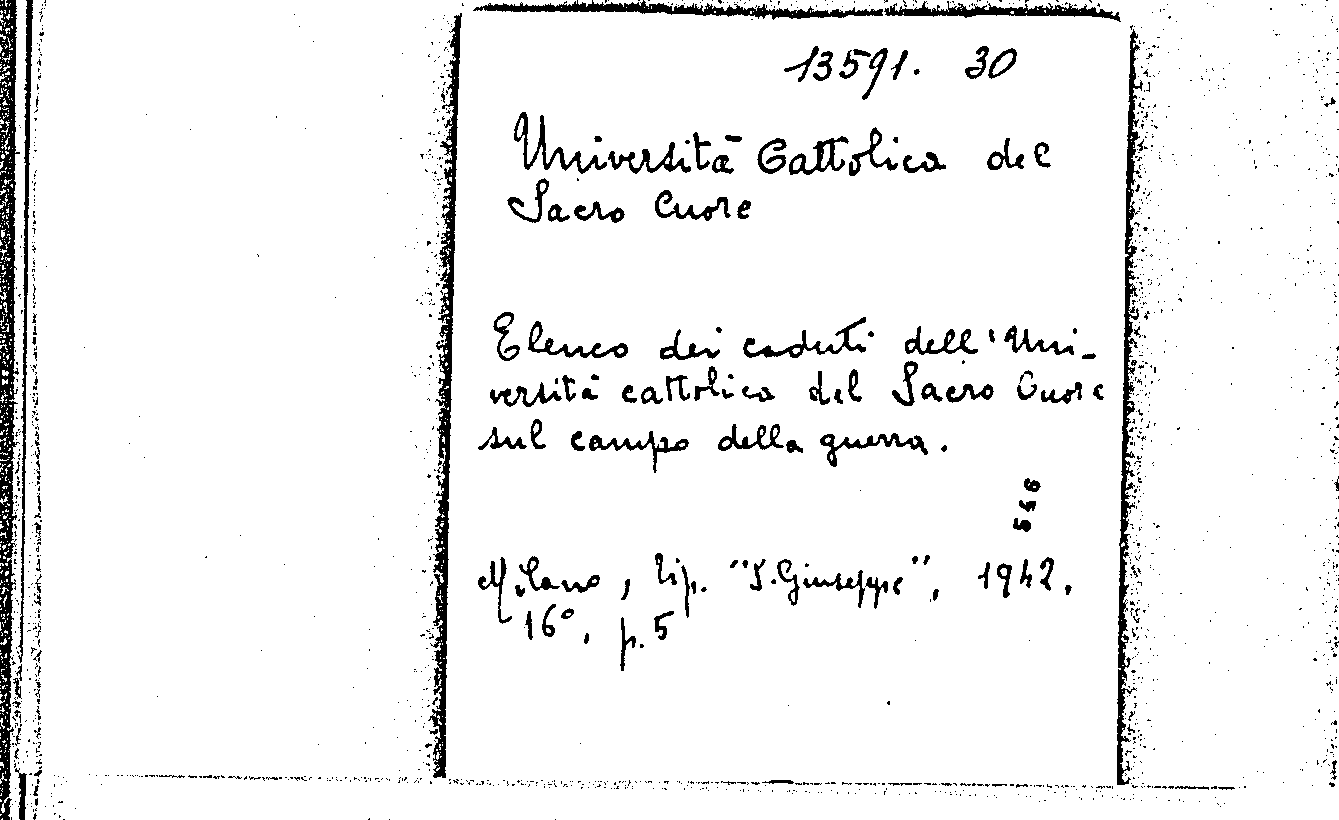 13591. 30
Università Cattolica del
Sacro Cuore
Elenco dei caduti dell'Uni-
versità cattolica del Sacro Cuore
sul campo della guerra.
Milano, tip. "S. Giuseppe", 1942.
16°, p. 5